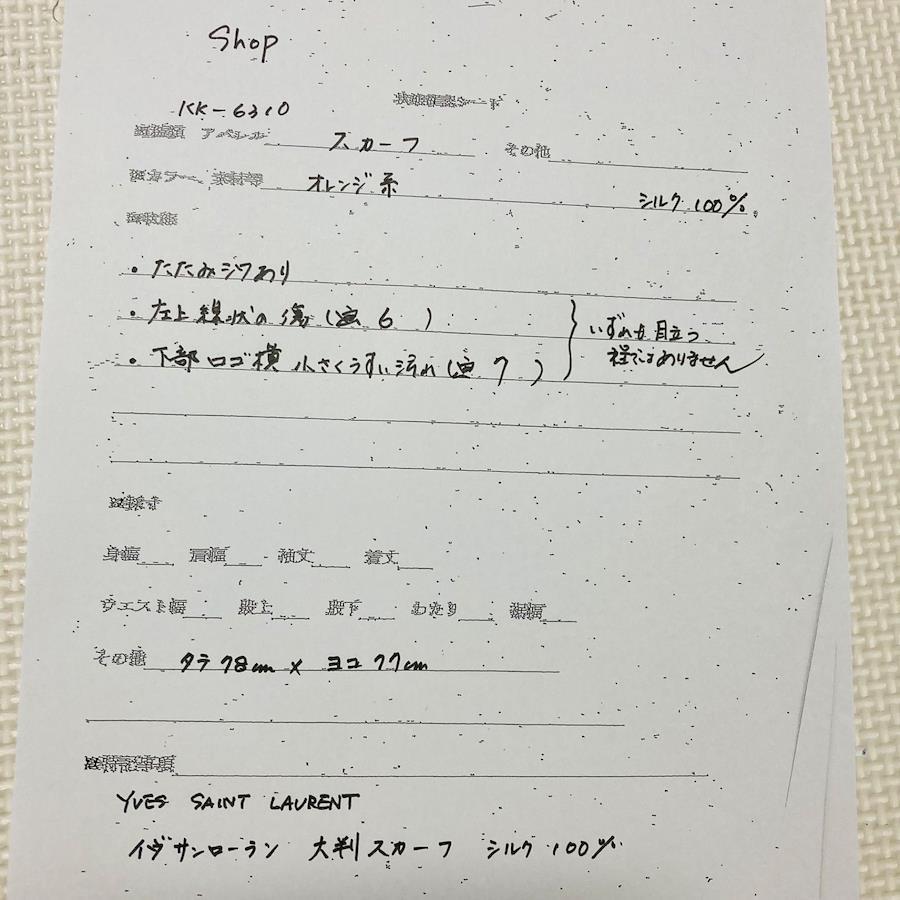 Shop
KK-6310
状態確認シート
■種類 アパレル スカーフ その他
■カラー、素材等 オレンジ系 シルク 100%
■状態
・たたみジワあり
・左上 線状の傷 (画 6 )
・下部 ロゴ横 小さくうすい汚れ (画 7 )
いずれも目立つ
程ではありません
■採寸
身幅 肩幅 袖丈 着丈
ウエスト幅 股上 股下 わたり 裾幅
その他 タテ78cm x ヨコ77cm
■特記事項
YVES SAINT LAURENT
イヴサンローラン 大判スカーフ シルク 100%